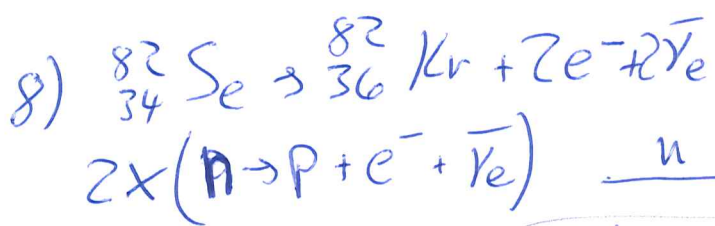 8) ⁸²₃₄Se → ⁸²₃₆Kr + 2e⁻ + 2ν̅ₑ
2x(n → p + e⁻ + ν̅ₑ) n